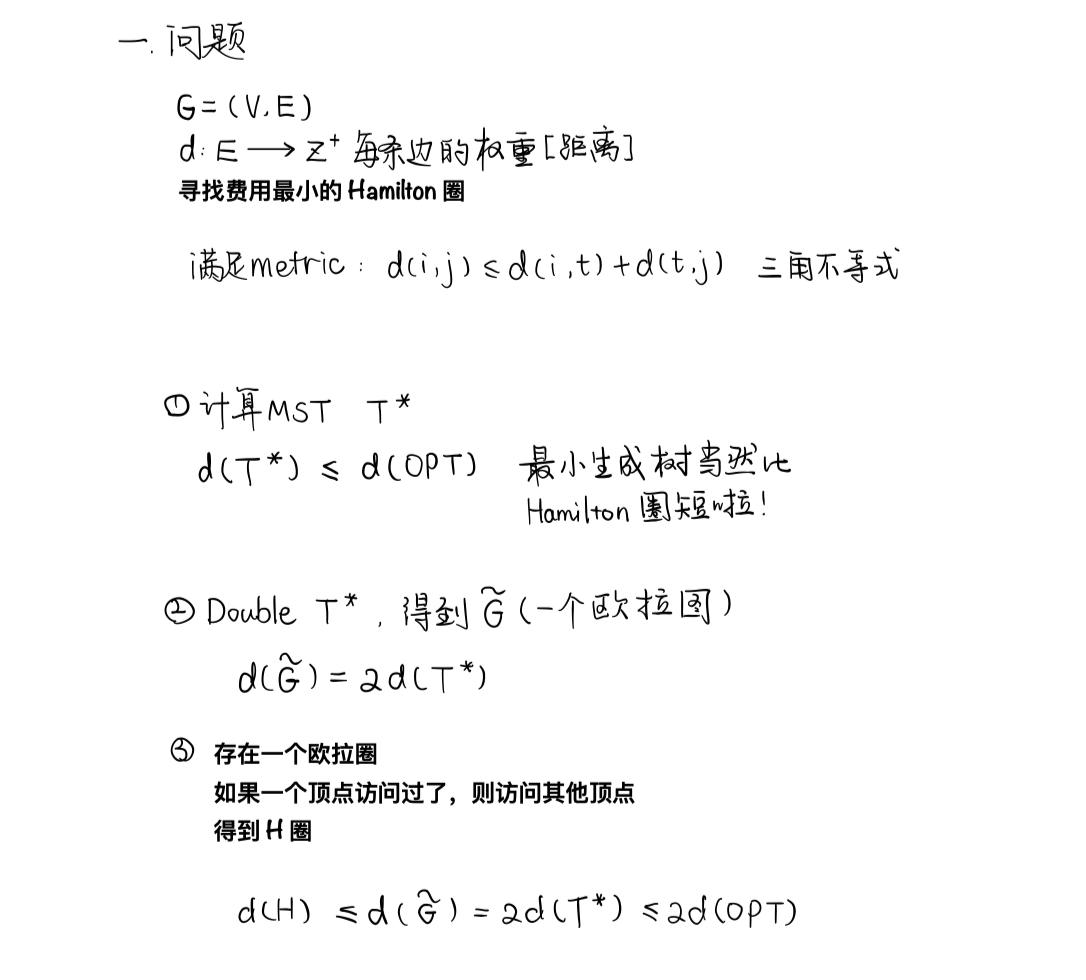 一. 问题
G = (V, E)
d: E ⟶ Z⁺ 每条边的权重[距离]
寻找费用最小的 Hamilton 圈
满足metric: d(i,j) ≤ d(i,t) + d(t,j) 三角不等式
① 计算MST T*
d(T*) ≤ d(OPT) 最小生成树当然比
Hamilton 圈短啦!
② Double T*, 得到 G̃ (一个欧拉图)
d(G̃) = 2d(T*)
③ 存在一个欧拉圈
如果一个顶点访问过了，则访问其他顶点
得到 H 圈
d(H) ≤ d(G̃) = 2d(T*) ≤ 2d(OPT)